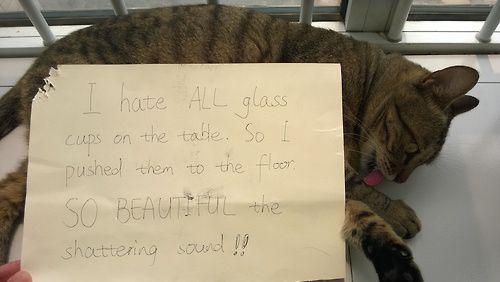 I hate ALL glass
cups on the table. So I
pushed them to the floor.
SO BEAUTIFUL the
shattering sound!!